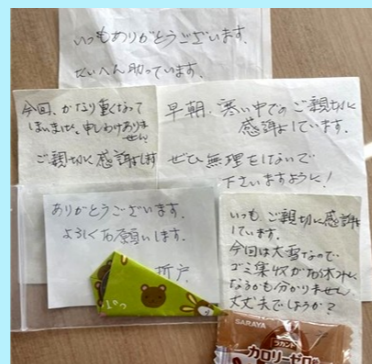 いつもありがとうございます。
たいへん助っています。
今回、かなり重くなって
しまいました。申しわけありま
せん
ご親切に感謝します
早朝、寒い中でのご親切に
感謝しています。
ぜひ無理をしないで
下さいますように!
ありがとうございます。
よろしくお願いします。
折戸
いつも、ご親切に感謝
しています。
今回は大雪なので
ゴミ集収がお休みに
なるかも分かりません
丈丈夫でしょうか?
SARAYA
ラカント
カロリーゼロ